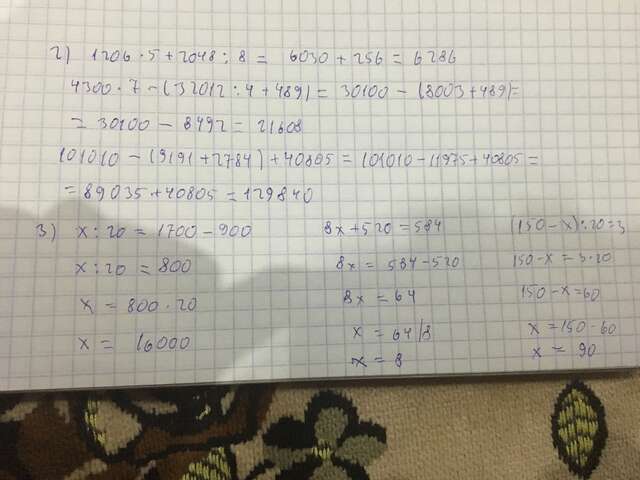 2) 1206 · 5 + 2048 : 8 = 6030 + 256 = 6286
4300 · 7 - (32012 : 4 + 489) = 30100 - (8003 + 489) =
= 30100 - 8492 = 21608
101010 - (9191 + 2784) + 40805 = 101010 - 11975 + 40805 =
= 89035 + 40805 = 129840
3) x : 20 = 1700 - 900
x : 20 = 800
x = 800 · 20
x = 16000
8x + 520 = 584
8x = 584 - 520
8x = 64
x = 64/8
x = 8
(150 - x) : 20 = 3
150 - x = 3 · 20
150 - x = 60
x = 150 - 60
x = 90